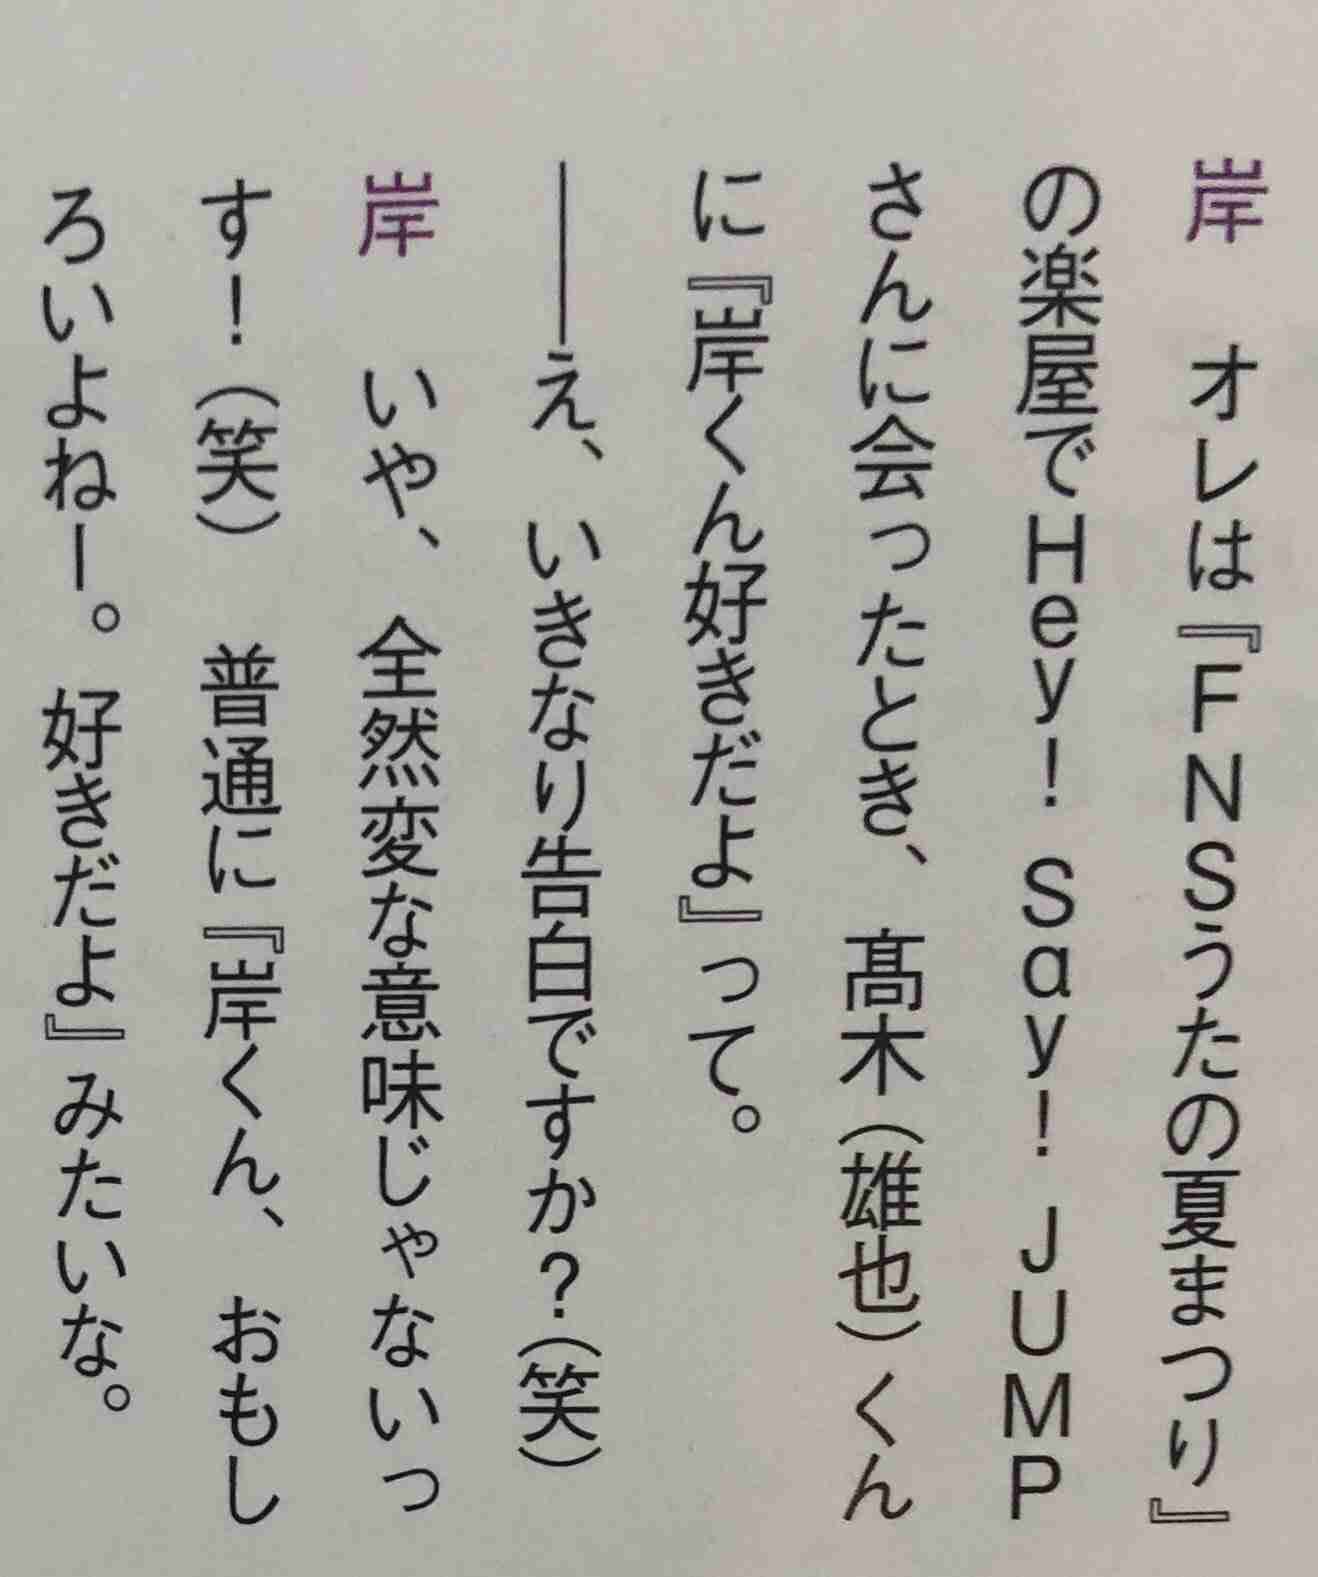 岸　オレは『FNSうたの夏まつり』
の楽屋でHey! Say! JUMP
さんに会ったとき、髙木（雄也）くん
に『岸くん好きだよ』って。
――え、いきなり告白ですか？（笑）
岸　いや、全然変な意味じゃないっ
す！（笑）　普通に『岸くん、おもし
ろいよねー。好きだよ』みたいな。